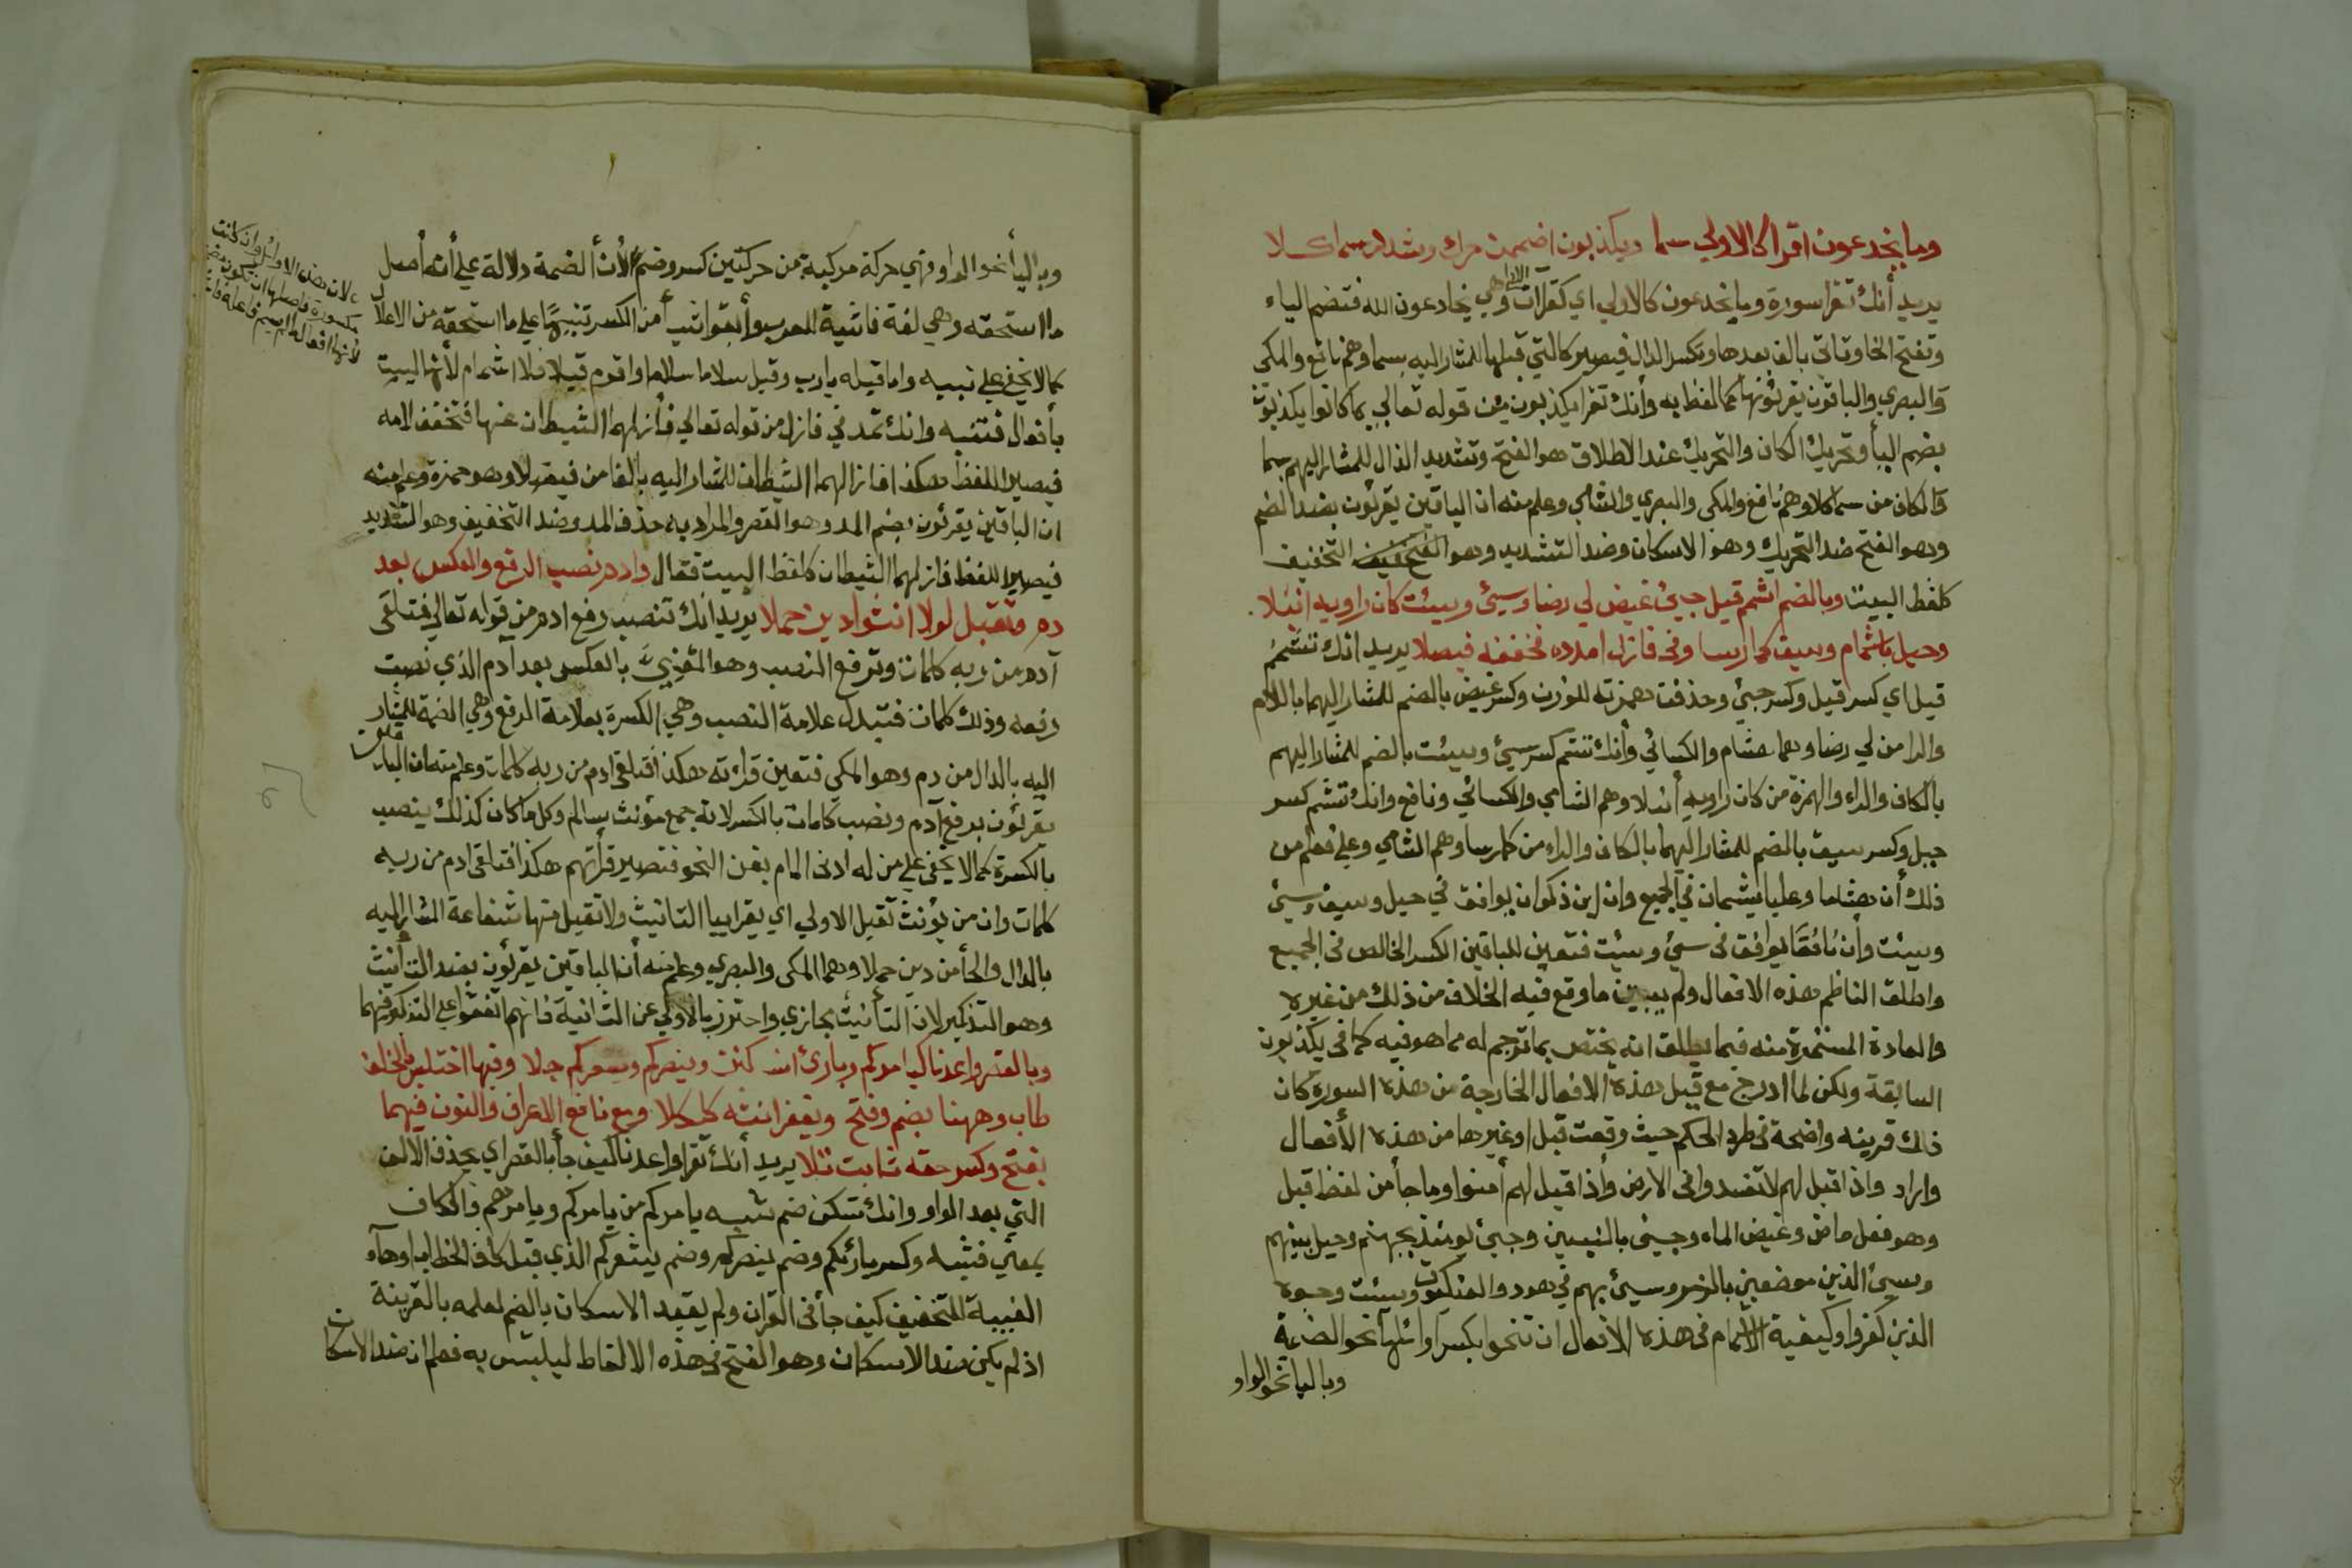 وما يخدعون اقرا كالاولي سما ويكذبون اضممن حرك وشدد سما كلا
يريد أنك تقرا سورة وما يخدعون كالاولي اي كقرآت الاولى وهي يخادعون الله فتضم الياء
وتفتح الخا وتاتى بالف بعدها وتكسر الدال فيصير كالتي قبلها للمشار اليه بسما وهم نافع والمكى
والبصري والباقون يقرئونها كما لفظ به وأنك تقرا يكذبون من قوله تعالي بما كانوا يكذبون
بضم اليأ وتحريك الكاف والتحريك عند الاطلاق هو الفتح وتشديد الذال للمشار اليهم بسما
والكاف من سما كلا وهم نافع والمكى والبصري والشامي وعلم منه ان الباقين يقرئون بضد الضم
وهو الفتح ضد التحريك وهو الاسكان وضد التشديد وهو التخفيف
كلفظ البيت وبالضم اشمم قيل جيئ غيض لي رضا وسيئ وسيئت كان راويه انبلا
وحيل باشمام وسيق كما رسا وفى فازل امدده فخففه فيصلا يريد انك تشمم
قيل اي كسر قيل وكسر جيئ وحذفت همزته للوزن وكسر غيض بالضم للمشار اليهما باللام
والرا من لي رضا وهما هشام والكسائي وأنك تشم كسر سيئ وسيئت بالضم للمشار اليهم
بالكاف والراء والهمزة من كان راويه أنبلا وهم الشامي والكسائي ونافع وانك تشم كسر
حيل وكسر سيق بالضم للمشار اليهما بالكاف والراء من كما رسا وهم الشامي وعلي فعلم من
ذلك أن هشاما وعليا يشمان في الجميع وان ابن ذكوان يوافق في حيل وسيق وسيئ
وسيئت وأن نافعًا يوافق فى سيئ وسيئت فتعين للباقين الكسر الخالص فى الجميع
واطلق الناظم هذه الافعال ولم يبين ما وقع فيه الخلاف من ذلك من غيره
والعادة المستمرة منه فيما يطلق انه يختص بما ترجم له مما هو فيه كما في يكذبون
السابقة ولكن لما ادرج مع قيل هذه الافعال الخارجة من هذه السورة كان
ذلك قرينه واضحة فى طرد الحكم حيث وقعت قبل او غيرها من هذه الأفعال
واراد واذا قيل لهم لا تفسدوا فى الارض واذا قيل لهم أمنوا وما جأ من لفظ قيل
وهو فعل ماض وغيض الماء وجيئ بالنبيين وجيئ يومئذ بجهنم وحيل بينهم
وسيق الذين موضعين بالزمر وسيئ بهم في هود والعنكبوت وسيئت وجوه
الذين كفروا وكيفية الاشمام فى هذه الافعال ان تنحوا بكسر اوائلها نحو الضمة
وباليا نحو الواو
وباليأ نحو الواو فهي حركة مركبة من حركتين كسر وضم لأن الضمة دلالة علي أنه أصل
ما استحقه وهي لغة فاشية للعرب وأبقوا شيأ من الكسر تنبيهًا علي ما استحقه من الاعلال
كما لا يخفي علي نبيه واما قيله يارب وقيل سلاما سلاما واقوم قيلا فلا اشمام لأنها ليست
بأفعال فتنبه وانك تمد في فازل من قوله تعالي فأزلهما الشيطان عنها فتخفف لامه
فيصير اللفظ هكذا فازالهما الشيطان للمشار اليه بالفا من فيصلا وهو حمزة وعلم منه
ان الباقين يقرئون بضم المد وهو القصر والمراد به حذف المد وضد التخفيف وهو التشديد
فيصير اللفظ فازلهما الشيطان كلفظ البيت فقال وادم نصب الرفع والعكس بعد
دم وتقبل لولا انثوا دين حملا يريد انك تنصب رفع ادم من قوله تعالي فتلقى
آدم من ربه كلمات وترفع النصب وهو المعني بالعكس بعد آدم الذي نصبت
رفعه وذلك كلمات فتبدل علامة النصب وهي الكسرة بعلامة الرفع وهي الضمة للمشار
اليه بالدال من دم وهو المكي فتعين قراءته هكذا فتلقى ادم من ربه كلمات وعلم منه ان الباقون
يقرئون برفع آدم ونصب كلمات بالكسر لانه جمع مؤنث سالم وكل ما كان كذلك ينصب
بالكسرة كما لا يخفى علي من له ادنى المام بفن النحو فتصير قرأتهم هكذا فتلقى ادم من ربه
كلمات وان من يؤنث تقبل الاولي اي يقرا بيا التانيث ولا تقبل منها شفاعة المشار اليه
بالدال والحأ من دين حملا وهما المكى والبصري وعلم منه أن الباقين يقرئون بضد التأنيث
وهو التذكير لان التأنيث مجازي واحترز بالاولي عن الثانية فانهم اتفقوا علي التذكير فيها
وبالقصر واعدنا كيامركم وبارئ اسكنن وينصركم ويشعركم جلا وفيها اختلس بالخلف
طاب وههنا بضم وفتح ونغفر انثه كم كلا ومع نافع الاعراف والنون فيهما
بفتح وكسر حقه ثابت تلا يريد أنك تقرا واعدنا كيف جأ بالقصر اي بحذف الالف
التي بعد الواو وانك تسكن ضم شبه يامركم من يامركم ويامرهم فالكاف
بمعني فشبه وكسر بارئكم وضم ينصركم وضم يشعركم الذي قبل كاف الخطاب او هآء
الغيبة للتخفيف كيف جأ فى القرآن ولم يقيد الاسكان بالضم لعلمه بالقرينة
اذ لم يكن ضد الاسكان وهو الفتح فى هذه الالفاظ ليلبس به فعلم ان ضد الاسكان
لان هذه الاوائل وان كانت
مكسورة فاصلها ان تكون
لأنها افعال لم يسم فاعلها